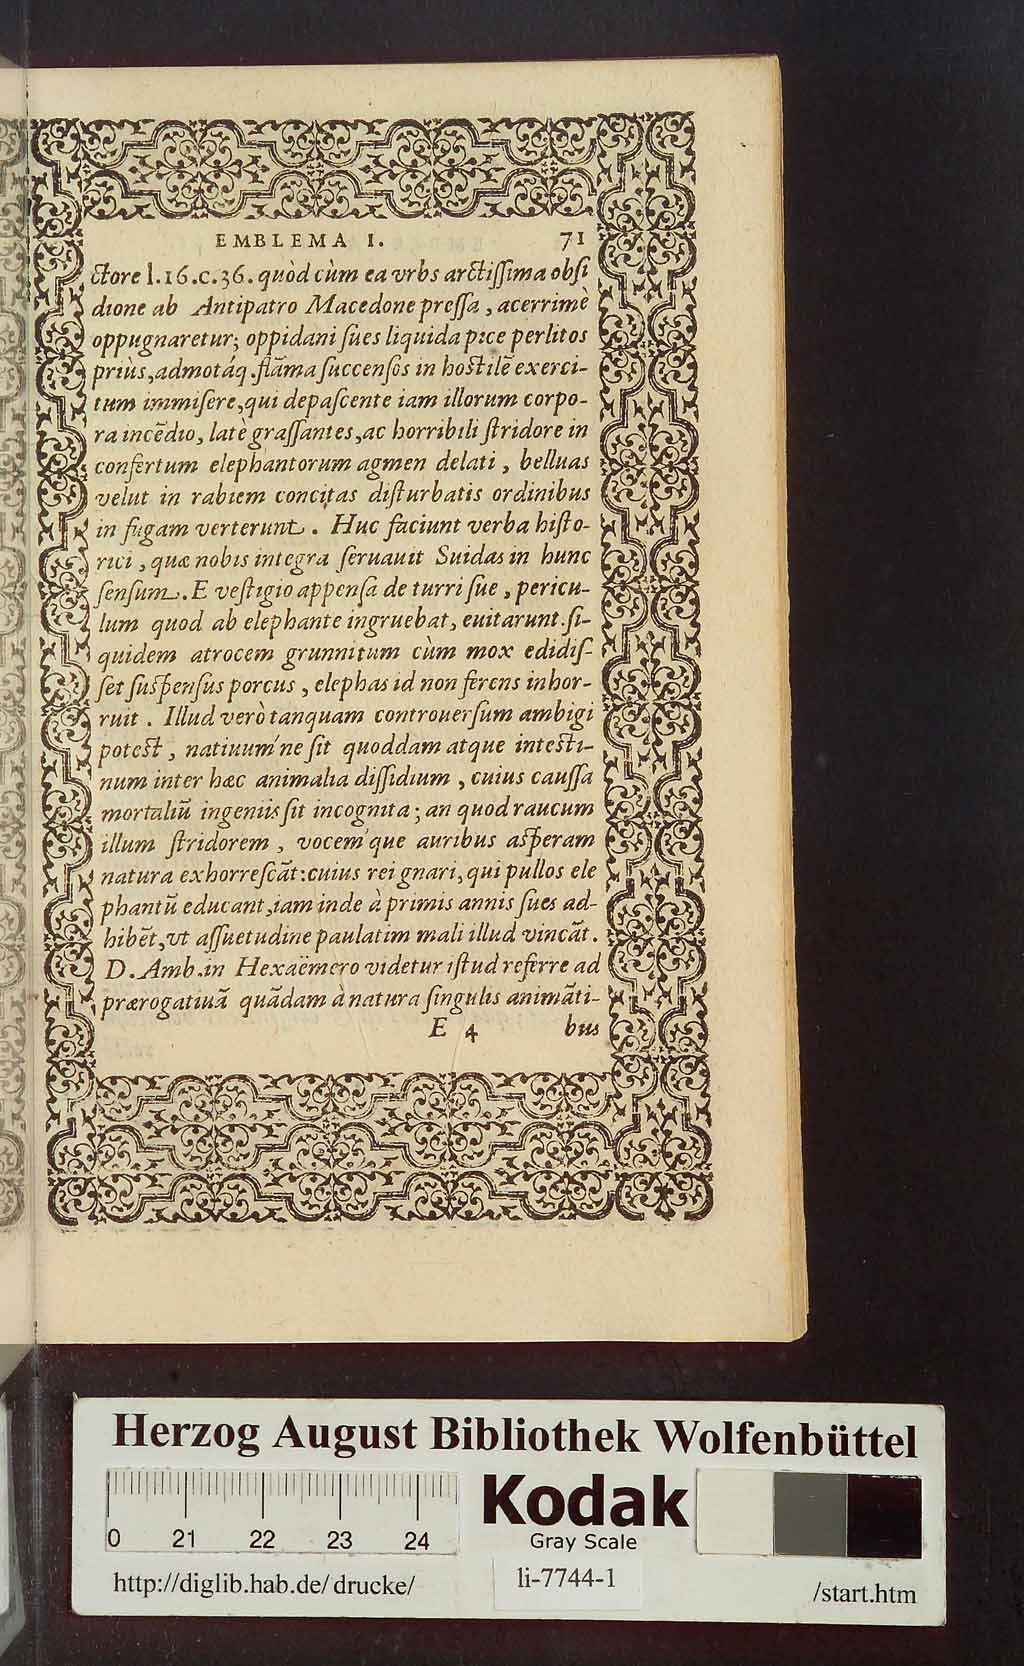 EMBLEMA I. 71
ctore l.16.c.36. quòd cùm ea vrbs arctiſſima obſi
dione ab Antipatro Macedone preſſa, acerrimè
oppugnaretur; oppidani ſues liquida pice perlitos
priùs, admotáq. flāma ſuccenſos in hostilē exerci-
tum immiſere, qui depaſcente iam illorum corpo-
ra incēdio, latè graſſantes, ac horribili ſtridore in
confertum elephantorum agmen delati, belluas
velut in rabiem concitas diſturbatis ordinibus
in fugam verterunt. Huc faciunt verba hiſto-
rici, quæ nobis integra ſeruauit Suidas in hunc
ſenſum. E veſtigio appenſa de turri ſue, pericu-
lum quod ab elephante ingruebat, euitarunt. ſi-
quidem atrocem grunnitum cùm mox edidiſ-
ſet ſuſpenſus porcus, elephas id non ferens inhor-
ruit. Illud verò tanquam controuerſum ambigi
potest, natiuum'ne ſit quoddam atque intesti-
num inter hæc animalia diſſidium, cuius cauſſa
mortaliū ingeniis ſit incognita; an quod raucum
illum ſtridorem, vocem'que auribus aſperam
natura exhorreſcāt: cuius rei gnari, qui pullos ele
phantū educant, iam inde à primis annis ſues ad-
hibēt, vt aſſuetudine paulatim mali illud vincāt.
D. Amb. in Hexaëmero videtur iſtud referre ad
prærogatiuā quādam à natura ſingulis animāti-
E 4 bus
Herzog August Bibliothek Wolfenbüttel
0 21 22 23 24
Kodak
Gray Scale
http://diglib.hab.de/drucke/
li-7744-1
/start.htm